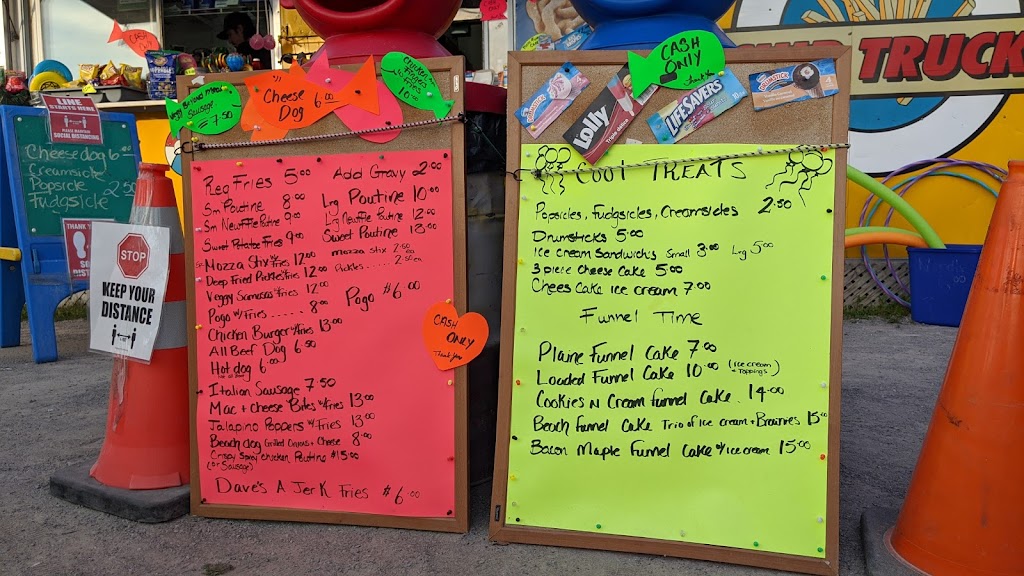 CASH ONLY
Cheese Dog 6.00
Sausage = 7.50
Chicken Fries 10.00
CASH ONLY
Thank you
LIFESAVERS
Lolly
TRUCK
LINE STARTS HERE
SOCIAL DISTANCING
Cheesedog 6.00
Creamsicle
Popsicle 2.50
Fudgsicle
THANK
STOP
KEEP YOUR
DISTANCE
Reg Fries 5.00
Sm Poutine 8.00
Sm Newffie Poutine 9.00
Sweet Potatoe Fries 9.00
Mozza Stix w/Fries 12.00
Deep Fried Pickles w/Fries 12.00
Veggy Samosas w/Fries 12.00
Pogo w/Fries ..... 8.00
Chicken Burger w/Fries 13.00
All Beef Dog 6.50
Hot dog 6.00
Italian Sausage 7.50
Mac + Cheese Bites w/Fries 13.00
Jalapino Poppers w/Fries 13.00
Beach dog Grilled Onions + Cheese 8.00
Crispy Spicy Chicken Poutine $15.00
(or Sausage)
Dave's A Jerk Fries $6.00
Add Gravy 2.00
Lrg Poutine 10.00
Lrg Newffie Poutine 12.00
Sweet Poutine 13.00
Mozza Stix 2.50
Pickles ..... 2.50 ea
Pogo $6.00
CASH
ONLY
Thank you
COOL TREATS
Popsicles, Fudgsicles, Creamsicles 2.50
Drumsticks 5.00
Ice cream Sandwichs Small 3.00 Lrg 5.00
3 piece Cheese Cake 5.00
Chees Cake ice cream 7.00
Funnel Time
Plaine Funnel Cake 7.00
Loaded Funnel Cake 10.00 (ice cream + Toppings)
Cookies N Cream Funnel Cake. 14.00
Beach Funnel Cake Trio of Ice cream + Brownies 15.00
Bacon Maple Funnel Cake w/ice cream 15.00